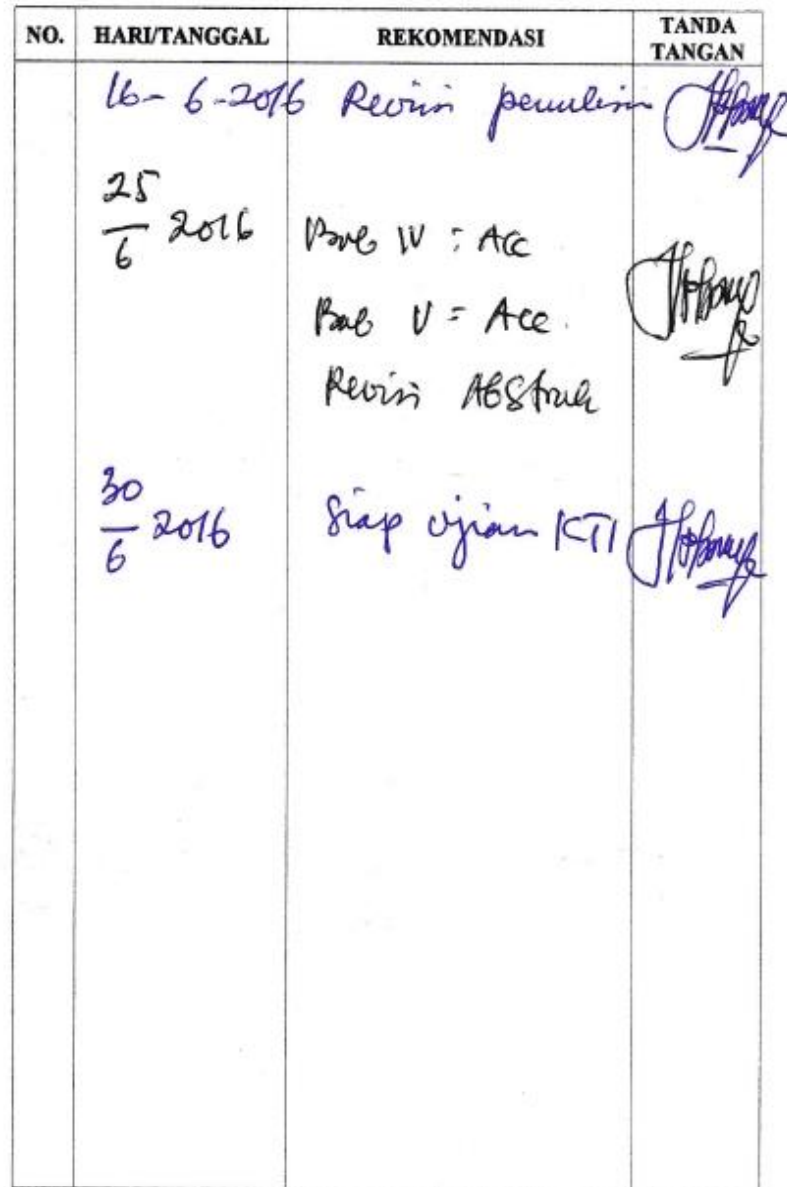 NO. HARI/TANGGAL REKOMENDASI TANDA TANGAN
16-6-2016 Revisi penulisan
25/6 2016 Bab IV : Acc
Bab V = Acc.
Revisi ABStrak
30/6 2016 Siap ujian KTI